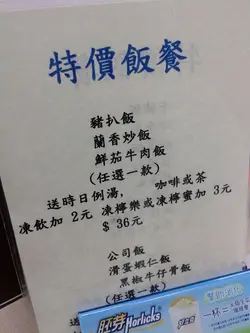 特價飯餐
豬扒飯
蘭香炒飯
鮮茄牛肉飯
(任選一款)
送時日例湯, 咖啡或茶
凍飲加 2元 凍檸樂或凍檸蜜加 3元
$ 36元
公司飯
滑蛋蝦仁飯
黑椒牛仔骨飯
(任選一款)
胚芽 Horlicks